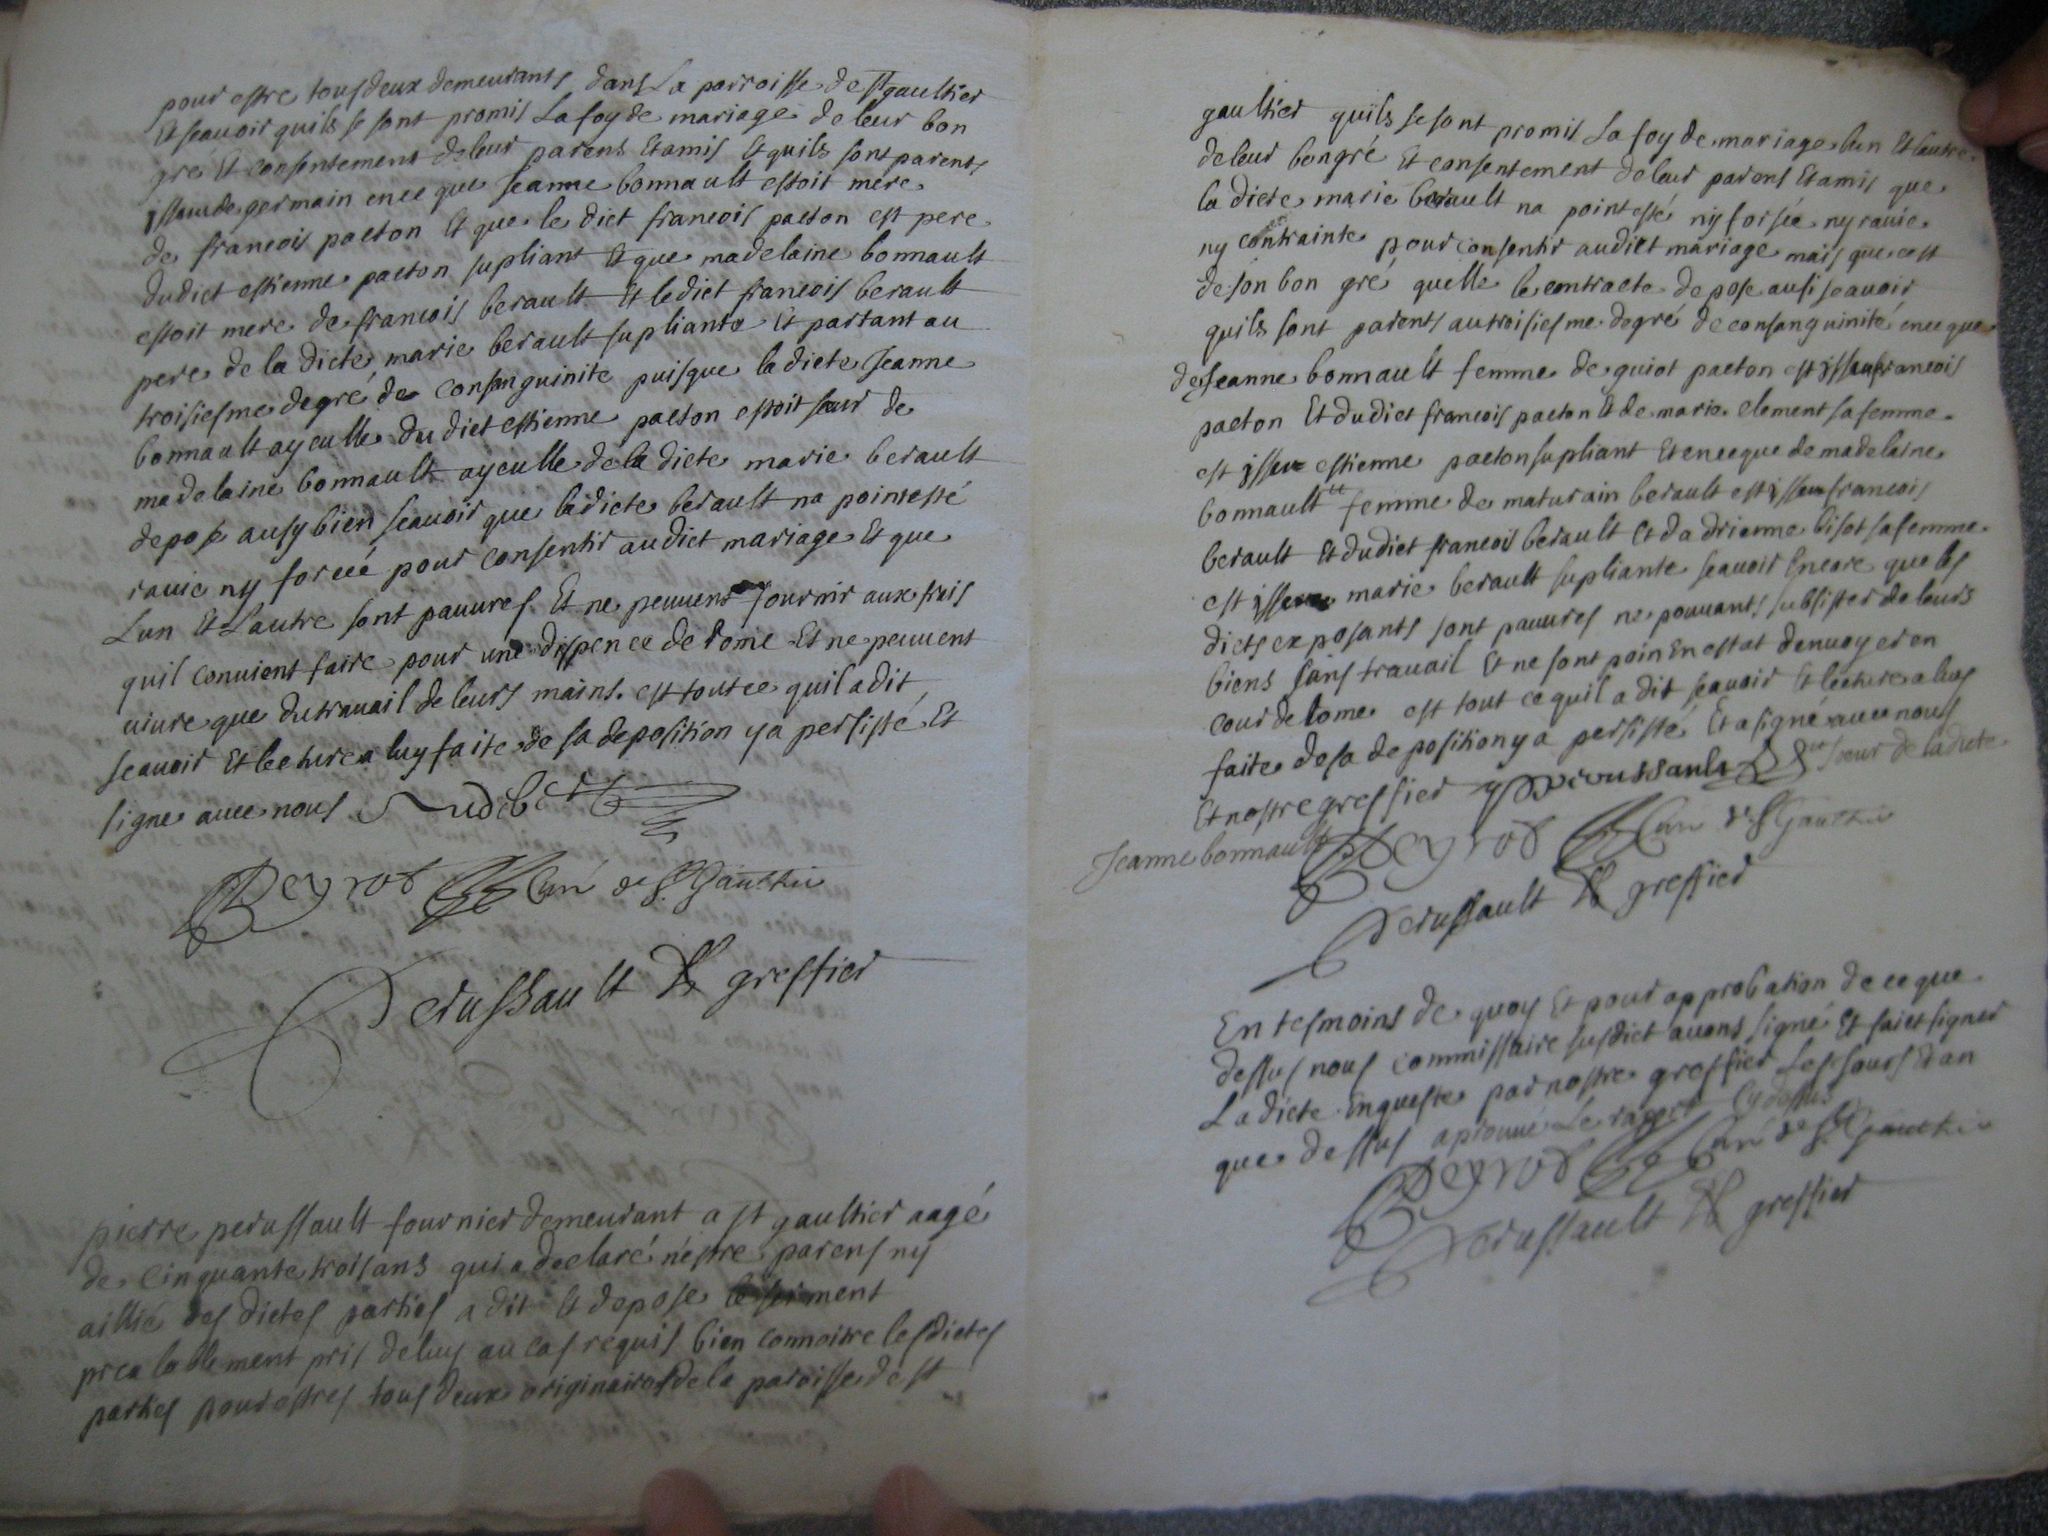 pour estre tous deux demeurants dans La parroisse de st gaultier
Et scauoir quils se sont promis La foy de mariage de leur bon
gré Et consentement de leur parens Et amis Et quils sont parents
isseu de germain en ce que Jeanne bonnault estoit mere
de francois paeton Et que le dict francois paeton est pere
dudict estienne paeton supliant Et que madelaine bonnault
estoit mere de francois berault Et ledict francois berault
pere de la dicte marie berault supliante Et partant au
troisiesme degré de consanguinite puisque ladicte Jeanne
bonnault ayeulle du dict estienne paeton estoit seur de
madelaine bonnault ayeulle de la dicte marie berault
depose ausy bien scauoir que ladicte berault na point esté
rauie ny forcée pour consentir audict mariage Et que
Lun Et Lautre sont pauures Et ne peuuent fournir aux frais
quil conuient faire pour une dispence de rome Et ne peuuent
uiure que du trauail de leurs mains. est tout ce quil a dit
scauoir Et lecture a luy faite de sa deposition y a persisté Et
signe auec nous Audebert
Peyrot Curé de St Gaultier
Perussault greffier
pierre perussault fournier demeurant a st gaultier aagé
de cinquante trois ans qui a declaré nestre parens ny
aillié des dictes parties a dit Et depose le serment
prealablement pris de luy au cas requis bien connoitre lesdictes
parties pour estres tous deux originaires de la paroisse de st
gaultier quils se sont promis La foy de mariage lun Et lautre
de leur bon gré Et consentement de leur parens Et amis que
la dicte marie berault na point esté ny forsée ny rauie
ny contrainte pour consentir audict mariage mais que cest
de son bon gré quelle le contracte depose ausi scauoir
quils sont parents au troisiesme degré de consanguinité en ce que
de Jeanne bonnault femme de guiot paeton est isseu francois
paeton Et dudict francois paeton Et de marie clement sa femme
est isseu estienne paeton supliant Et en ce que de madelaine
bonnault femme de maturain berault est isseu francois
berault Et dudict francois berault Et dadrienne bisot sa femme
est isseue marie berault supliante scauoir Encore que les
dicts exposants sont pauures ne pouuants subsister de leurs
biens sans trauail Et ne sont poin En estat denuoyer en
cour de Rome est tout ce quil a dit scauoir Et lecture a luy
faite de sa deposition y a persisté Et a signé auec nous
Et nostre greffier p peroussault seur de ladicte
Jeanne bonnault
Peyrot Curé de St Gaultier
Perussault greffier
En tesmoins de quoy Et pour approbation de ce que
dessus nous commissaire susdict auons signé Et faict signer
La dicte Enqueste par nostre greffier Les jours Et an
que dessus aprouué Le cy dessus
Peyrot Curé de St Gaultier
Perussault greffier